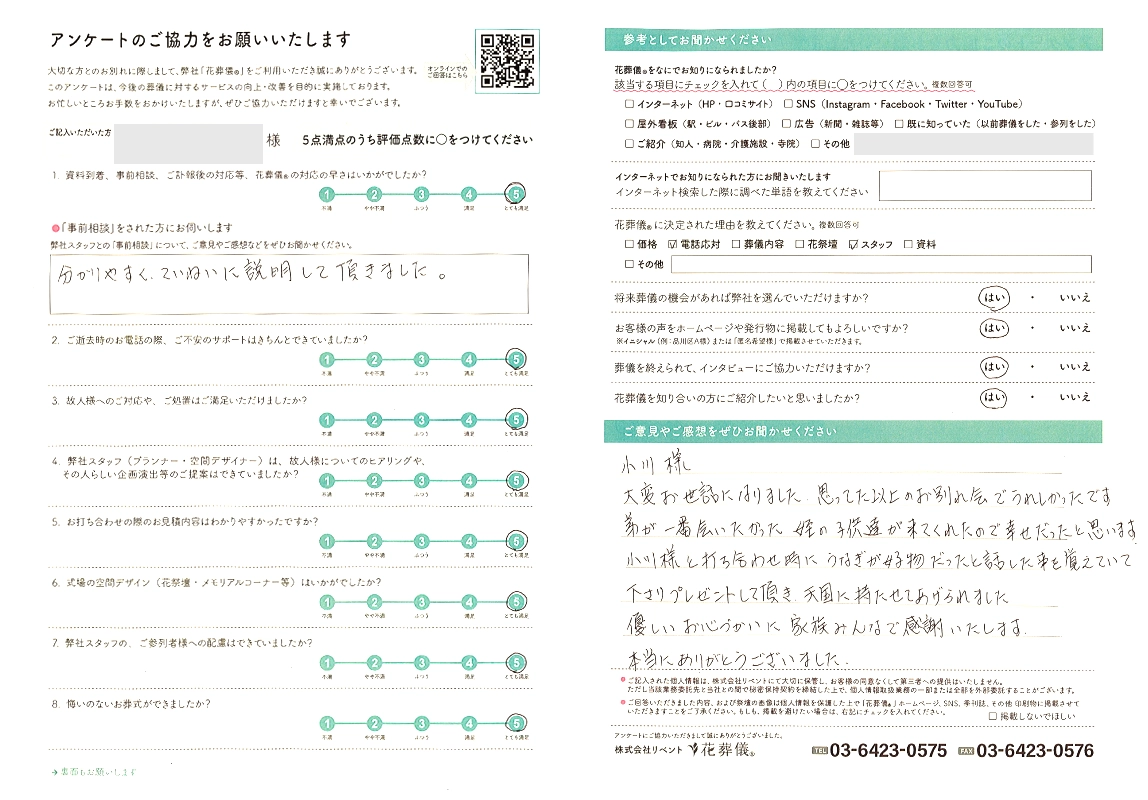 アンケートのご協力をお願いいたします
大切な方とのお別れに際しまして、弊社「花葬儀®」をご利用いただき誠にありがとうございます。
このアンケートは、今後の葬儀に対するサービスの向上・改善を目的に実施しております。
お忙しいところお手数をおかけいたしますが、ぜひご協力いただけますと幸いでございます。
オンラインでの
ご回答はこちら
ご記入いただいた方
様
5点満点のうち評価点数に○をつけてください
1. 資料到着、事前相談、ご訃報後の対応等、花葬儀®の対応の早さはいかがでしたか?
1 2 3 4 5
不満 やや不満 ふつう 満足 とても満足
●「事前相談」をされた方にお伺いします
弊社スタッフとの「事前相談」について、ご意見やご感想などをぜひお聞かせください。
分かりやすく、ていねいに説明して頂きました。
2. ご逝去時のお電話の際、ご不安のサポートはきちんとできていましたか?
1 2 3 4 5
不満 やや不満 ふつう 満足 とても満足
3. 故人様へのご対応や、ご処置はご満足いただけましたか?
1 2 3 4 5
不満 やや不満 ふつう 満足 とても満足
4. 弊社スタッフ(プランナー・空間デザイナー)は、故人様についてのヒアリングや、
その人らしい企画演出等のご提案はできていましたか?
1 2 3 4 5
不満 やや不満 ふつう 満足 とても満足
5. お打ち合わせの際のお見積内容はわかりやすかったですか?
1 2 3 4 5
不満 やや不満 ふつう 満足 とても満足
6. 式場の空間デザイン(花祭壇・メモリアルコーナー等)はいかがでしたか?
1 2 3 4 5
不満 やや不満 ふつう 満足 とても満足
7. 弊社スタッフの、ご参列者様への配慮はできていましたか?
1 2 3 4 5
不満 やや不満 ふつう 満足 とても満足
8. 悔いのないお葬式ができましたか?
1 2 3 4 5
不満 やや不満 ふつう 満足 とても満足
→裏面もお願いします
参考としてお聞かせください
花葬儀®をなにでお知りになられましたか?
該当する項目にチェックを入れて( )内の項目に○をつけてください。複数回答可
□ インターネット(HP・口コミサイト) □ SNS(Instagram・Facebook・Twitter・YouTube)
□ 屋外看板(駅・ビル・バス後部) □ 広告(新聞・雑誌等) □ 既に知っていた(以前葬儀をした・参列をした)
□ ご紹介(知人・病院・介護施設・寺院) □ その他
インターネットでお知りになられた方にお聞きいたします
インターネット検索した際に調べた単語を教えてください
花葬儀®に決定された理由を教えてください。複数回答可
□ 価格 ☑ 電話応対 □ 葬儀内容 □ 花祭壇 ☑ スタッフ □ 資料
□ その他
将来葬儀の機会があれば弊社を選んでいただけますか? はい ・ いいえ
お客様の声をホームページや発行物に掲載してもよろしいですか? はい ・ いいえ
※イニシャル(例:品川区A様)または「匿名希望様」で掲載させていただきます。
葬儀を終えられて、インタビューにご協力いただけますか? はい ・ いいえ
花葬儀を知り合いの方にご紹介したいと思いましたか? はい ・ いいえ
ご意見やご感想をぜひお聞かせください
小川様
大変お世話になりました。思ってた以上のお別れ会でうれしかったです
弟が一番会いたかった 姪の子供達が来てくれたので幸せだったと思います
小川様と打ち合わせ時に うなぎが好物だったと話した事を覚えていて
下さりプレゼントして頂き、天国に持たせてあげられました
優しいお心づかいに 家族みんなで感謝いたします。
本当にありがとうございました。
●ご記入された個人情報は、株式会社リベントにて大切に保管し、お客様の同意なくして第三者への提供はいたしません。
ただし当該業務委託先と当社との間で秘密保持契約を締結した上で、個人情報取扱業務の一部または全部を外部委託することがございます。
●ご回答いただきました内容、および祭壇の画像は個人情報を保護した上で「花葬儀®」ホームページ、SNS、季刊誌、その他 印刷物に掲載させて
いただきますことをご了承ください。もしも、掲載を避けたい場合は、右記にチェックを入れてください。
□ 掲載しないでほしい
アンケートにご協力いただきまして誠にありがとうございました。
株式会社リベント 花葬儀® TEL 03-6423-0575 FAX 03-6423-0576